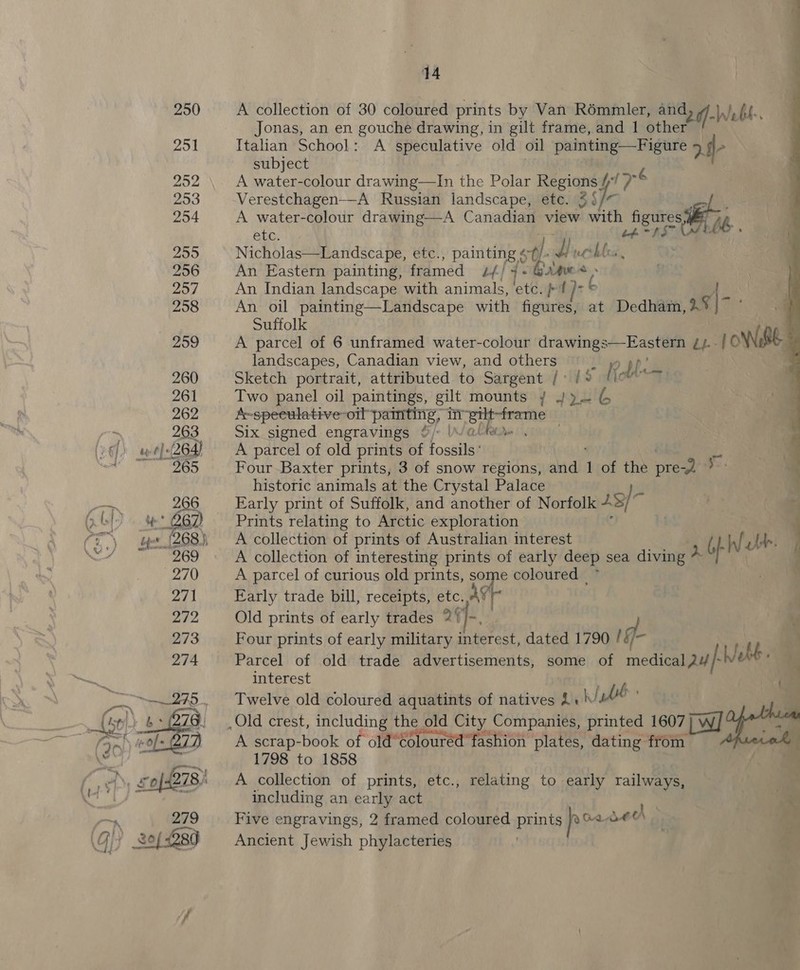 14
250 A collection of 30 coloured prints by Van Römmler, and
Jonas, an en gouche drawing, in gilt frame, and 1 other
251 Italian School: A speculative old oil painting—Figure
subject
252 A water-colour drawing—In the Polar Regions
253 Verestchagen—A Russian landscape, etc.
254 A water-colour drawing—A Canadian view with figures,
etc.
255 Nicholas—Landscape, etc., painting
256 An Eastern painting, framed
257 An Indian landscape with animals, etc.
258 An oil painting—Landscape with figures, at Dedham,
Suffolk
259 A parcel of 6 unframed water-colour drawings—Eastern
landscapes, Canadian view, and others
260 Sketch portrait, attributed to Sargent
261 Two panel oil paintings, gilt mounts
262 A speculative oil painting, in gilt frame
263 Six signed engravings
264 A parcel of old prints of fossils
265 Four Baxter prints, 3 of snow regions, and 1 of the pre-
historic animals at the Crystal Palace
266 Early print of Suffolk, and another of Norfolk
267 Prints relating to Arctic exploration
268 A collection of prints of Australian interest
269 A collection of interesting prints of early deep sea diving
270 A parcel of curious old prints, some coloured
271 Early trade bill, receipts, etc.
272 Old prints of early trades
273 Four prints of early military interest, dated 1790
274 Parcel of old trade advertisements, some of medical
interest
275 Twelve old coloured aquatints of natives
276 Old crest, including the old City Companies, printed 1607
277 A scrap-book of old coloured fashion plates, dating from
1798 to 1858
278 A collection of prints, etc., relating to early railways,
including an early act
279 Five engravings, 2 framed coloured prints
280 Ancient Jewish phylacteries